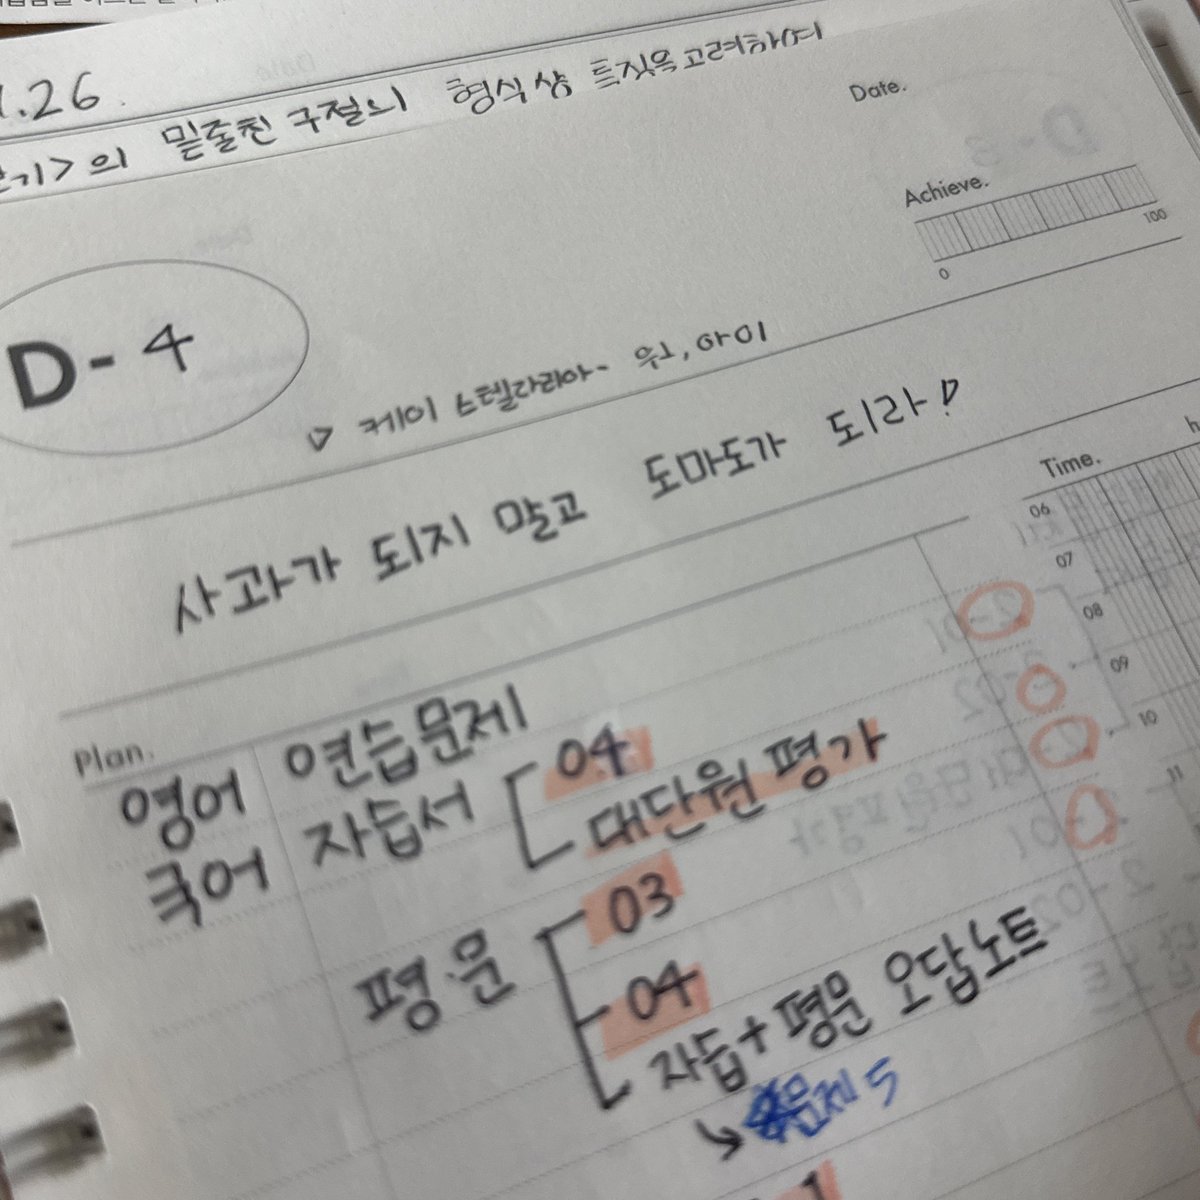 .26
기>의 밑줄친 구절의 형식상 특징을 고려하여
Date.
Achieve.
0 100
D-4
▷ 케이 스텔라리아- 유고, 아이
사과가 되지 말고 도마도가 되라!
Time.
06
07
08
09
10
11
Plan.
영어 연습문제
국어 자습서 04
대단원 평가
평.문 03
04
자습+평문 오답노트
↳ 문제 5